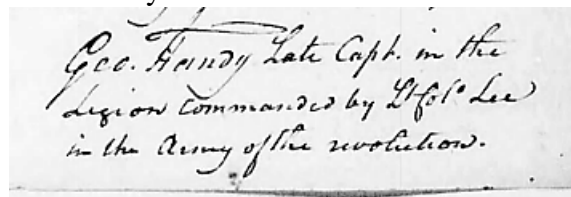 Geo. Handy Late Capt. in the
Legion commanded by Lt Colo Lee
in the Army of the revolution.